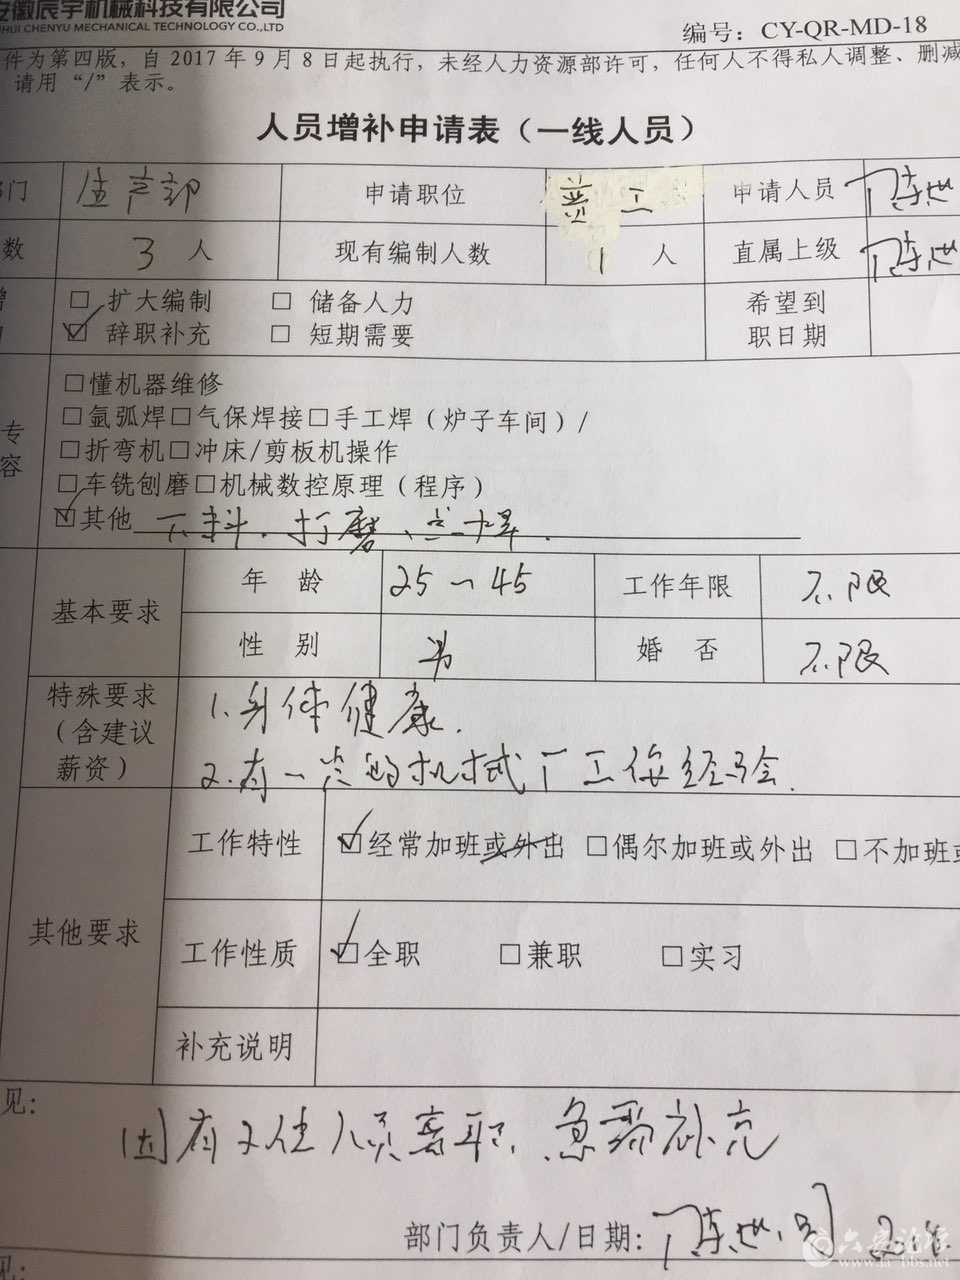 安徽辰宇机械科技有限公司
HUI CHENYU MECHANICAL TECHNOLOGY CO.,LTD
编号：CY-QR-MD-18
件为第四版，自 2017 年 9 月 8 日起执行，未经人力资源部许可，任何人不得私人调整、删减
请用“/”表示。
人员增补申请表（一线人员）
部门 生产部 申请职位 普工 申请人员 陈世
数 3 人 现有编制人数 1 人 直属上级 陈世
增 □ 扩大编制 □ 储备人力 希望到
☑ 辞职补充 □ 短期需要 职日期
□懂机器维修
□氩弧焊□气保焊接□手工焊（炉子车间）/
专 □折弯机□冲床/剪板机操作
容 □车铣刨磨□机械数控原理（程序）
☑其他 下料、打磨、点焊.
基本要求 年 龄 25~45 工作年限 不限
性 别 男 婚 否 不限
特殊要求 1.身体健康.
（含建议
薪资） 2.有一定的机械厂工作经验.
其他要求 工作特性 ☑经常加班或外出 □偶尔加班或外出 □不加班或
工作性质 ☑全职 □兼职 □实习
补充说明
见：
因有2位人员离职，急需补充
部门负责人/日期：陈世
见：
六安论坛
www.la-bbs.net